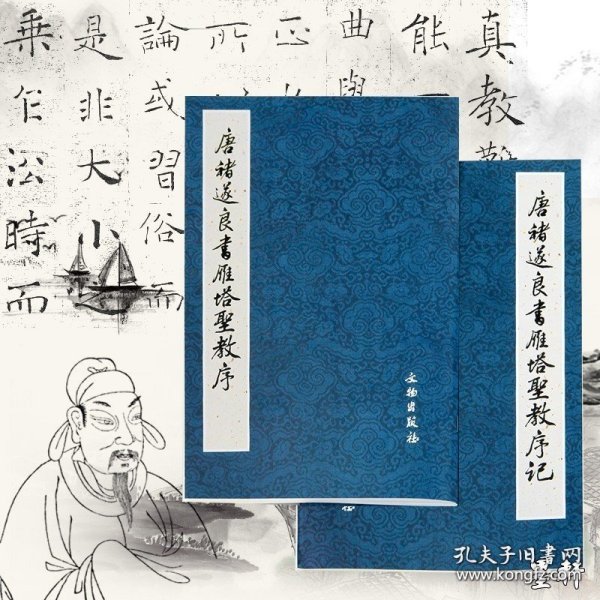 真教難
能
曲學
正
所
論或習俗而
是非大小
乘乍沿時而
唐褚遂良書雁塔聖教序
文物出版社
唐褚遂良書雁塔聖教序记
社
孔夫子旧書网
www.kongfz.com
墨轩